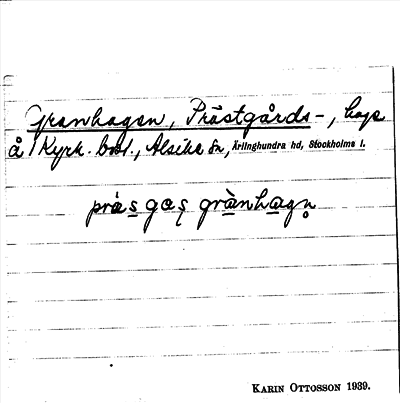 Granhagen, Prästgårds-, hage
å Kyrk. bol., Alsike sn, Ärlinghundra hd, Stockholms l.
KARIN OTTOSSON 1939.